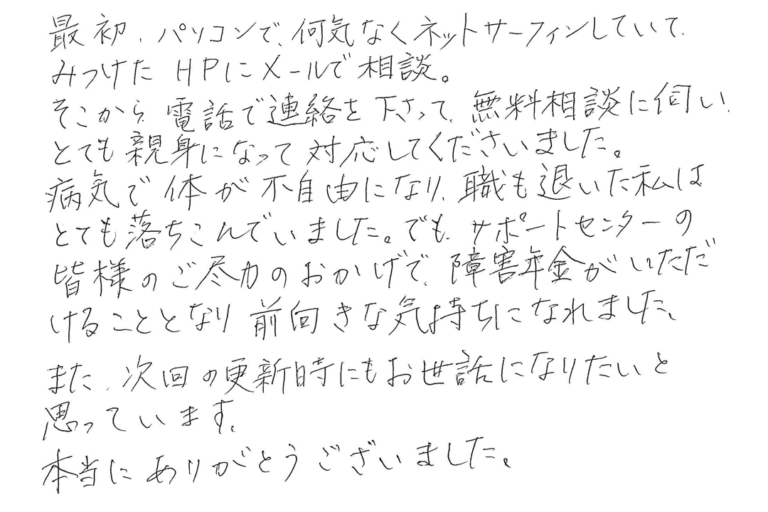 最初、パソコンで、何気なくネットサーフィンしていて、
みつけた HPにメールで相談。
そこから、電話で連絡を下さって、無料相談に伺い、
とても親身になって対応してくださいました。
病気で体が不自由になり、職も退いた私は
とても落ちこんでいました。でも、サポートセンターの
皆様のご尽力のおかげで、障害年金がいただ
けることとなり前向きな気持ちになれました。
また、次回の更新時にもお世話になりたいと
思っています。
本当にありがとうございました。